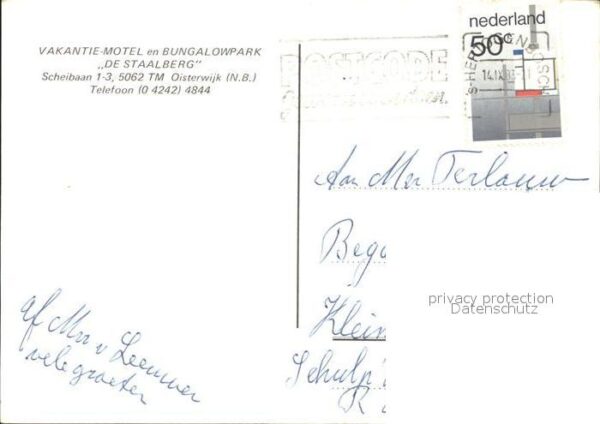 VAKANTIE-MOTEL en BUNGALOWPARK
„DE STAALBERG"
Scheibaan 1-3, 5062 TM Oisterwijk (N.B.)
Telefoon (0 4242) 4844
nederland
50 c
POSTCODE
Aan Mevr Terlouw
Bega
Klein
Schulp
R
privacy protection
Datenschutz
af Mevr v Leeuwen
vele groeten